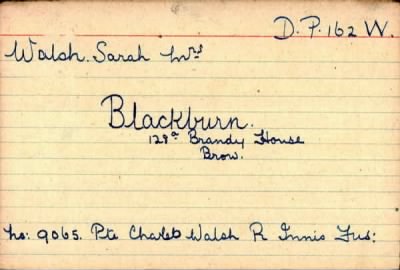 D.P. 162 W.
Walsh. Sarah Mrs
Blackburn.
129a Brandy House
Brow.
No. 9065. Pte Charles Walsh R Innis Fus: